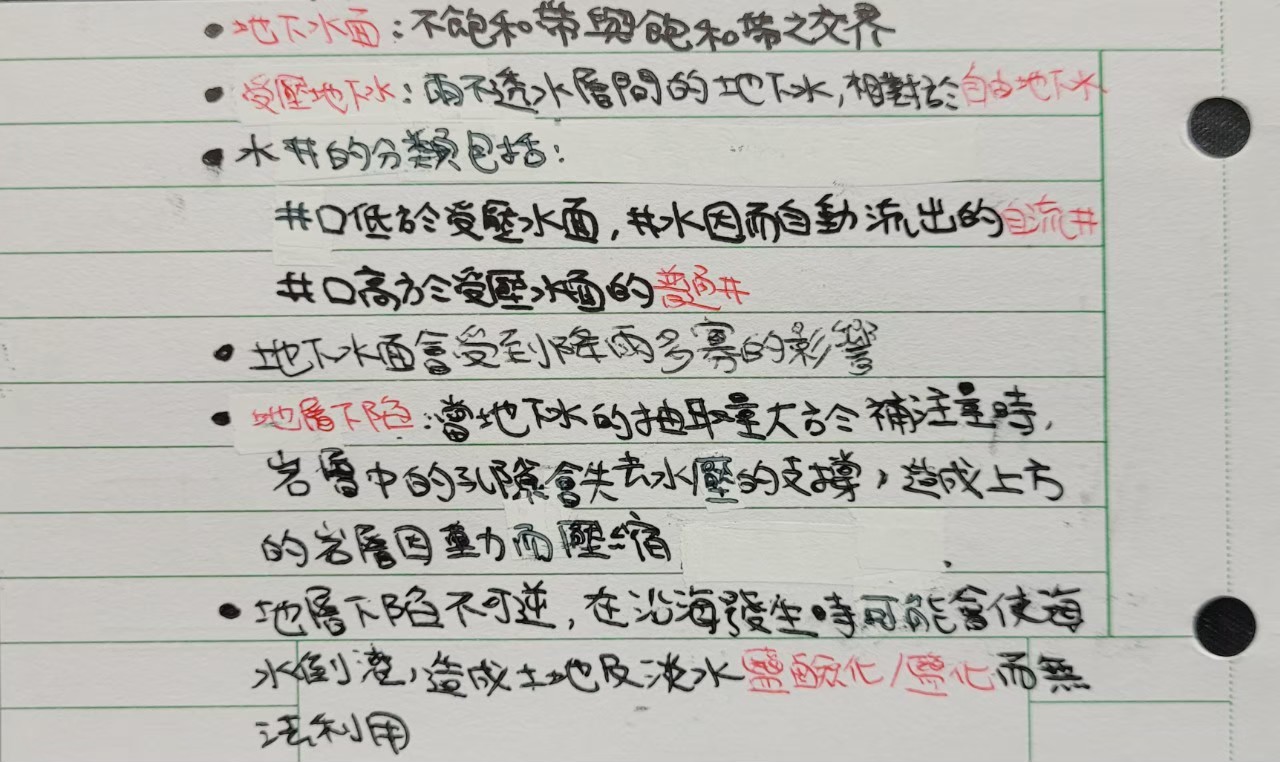 • 地下水面:不飽和帶與飽和帶之交界
• 受壓地下水:兩不透水層間的地下水,相對於自由地下水
• 水井的分類包括:
井口低於受壓水面,井水因而自動流出的自流井
井口高於受壓水面的普通井
• 地下水面會受到降雨多寡的影響
• 地層下陷:當地下水的抽取量大於補注量時,
岩層中的孔隙會失去水壓的支撐,造成上方
的岩層因重力而壓縮
• 地層下陷不可逆,在沿海發生時可能會使海
水倒灌,造成土地及淡水鹽酸化/鹽化而無
法利用